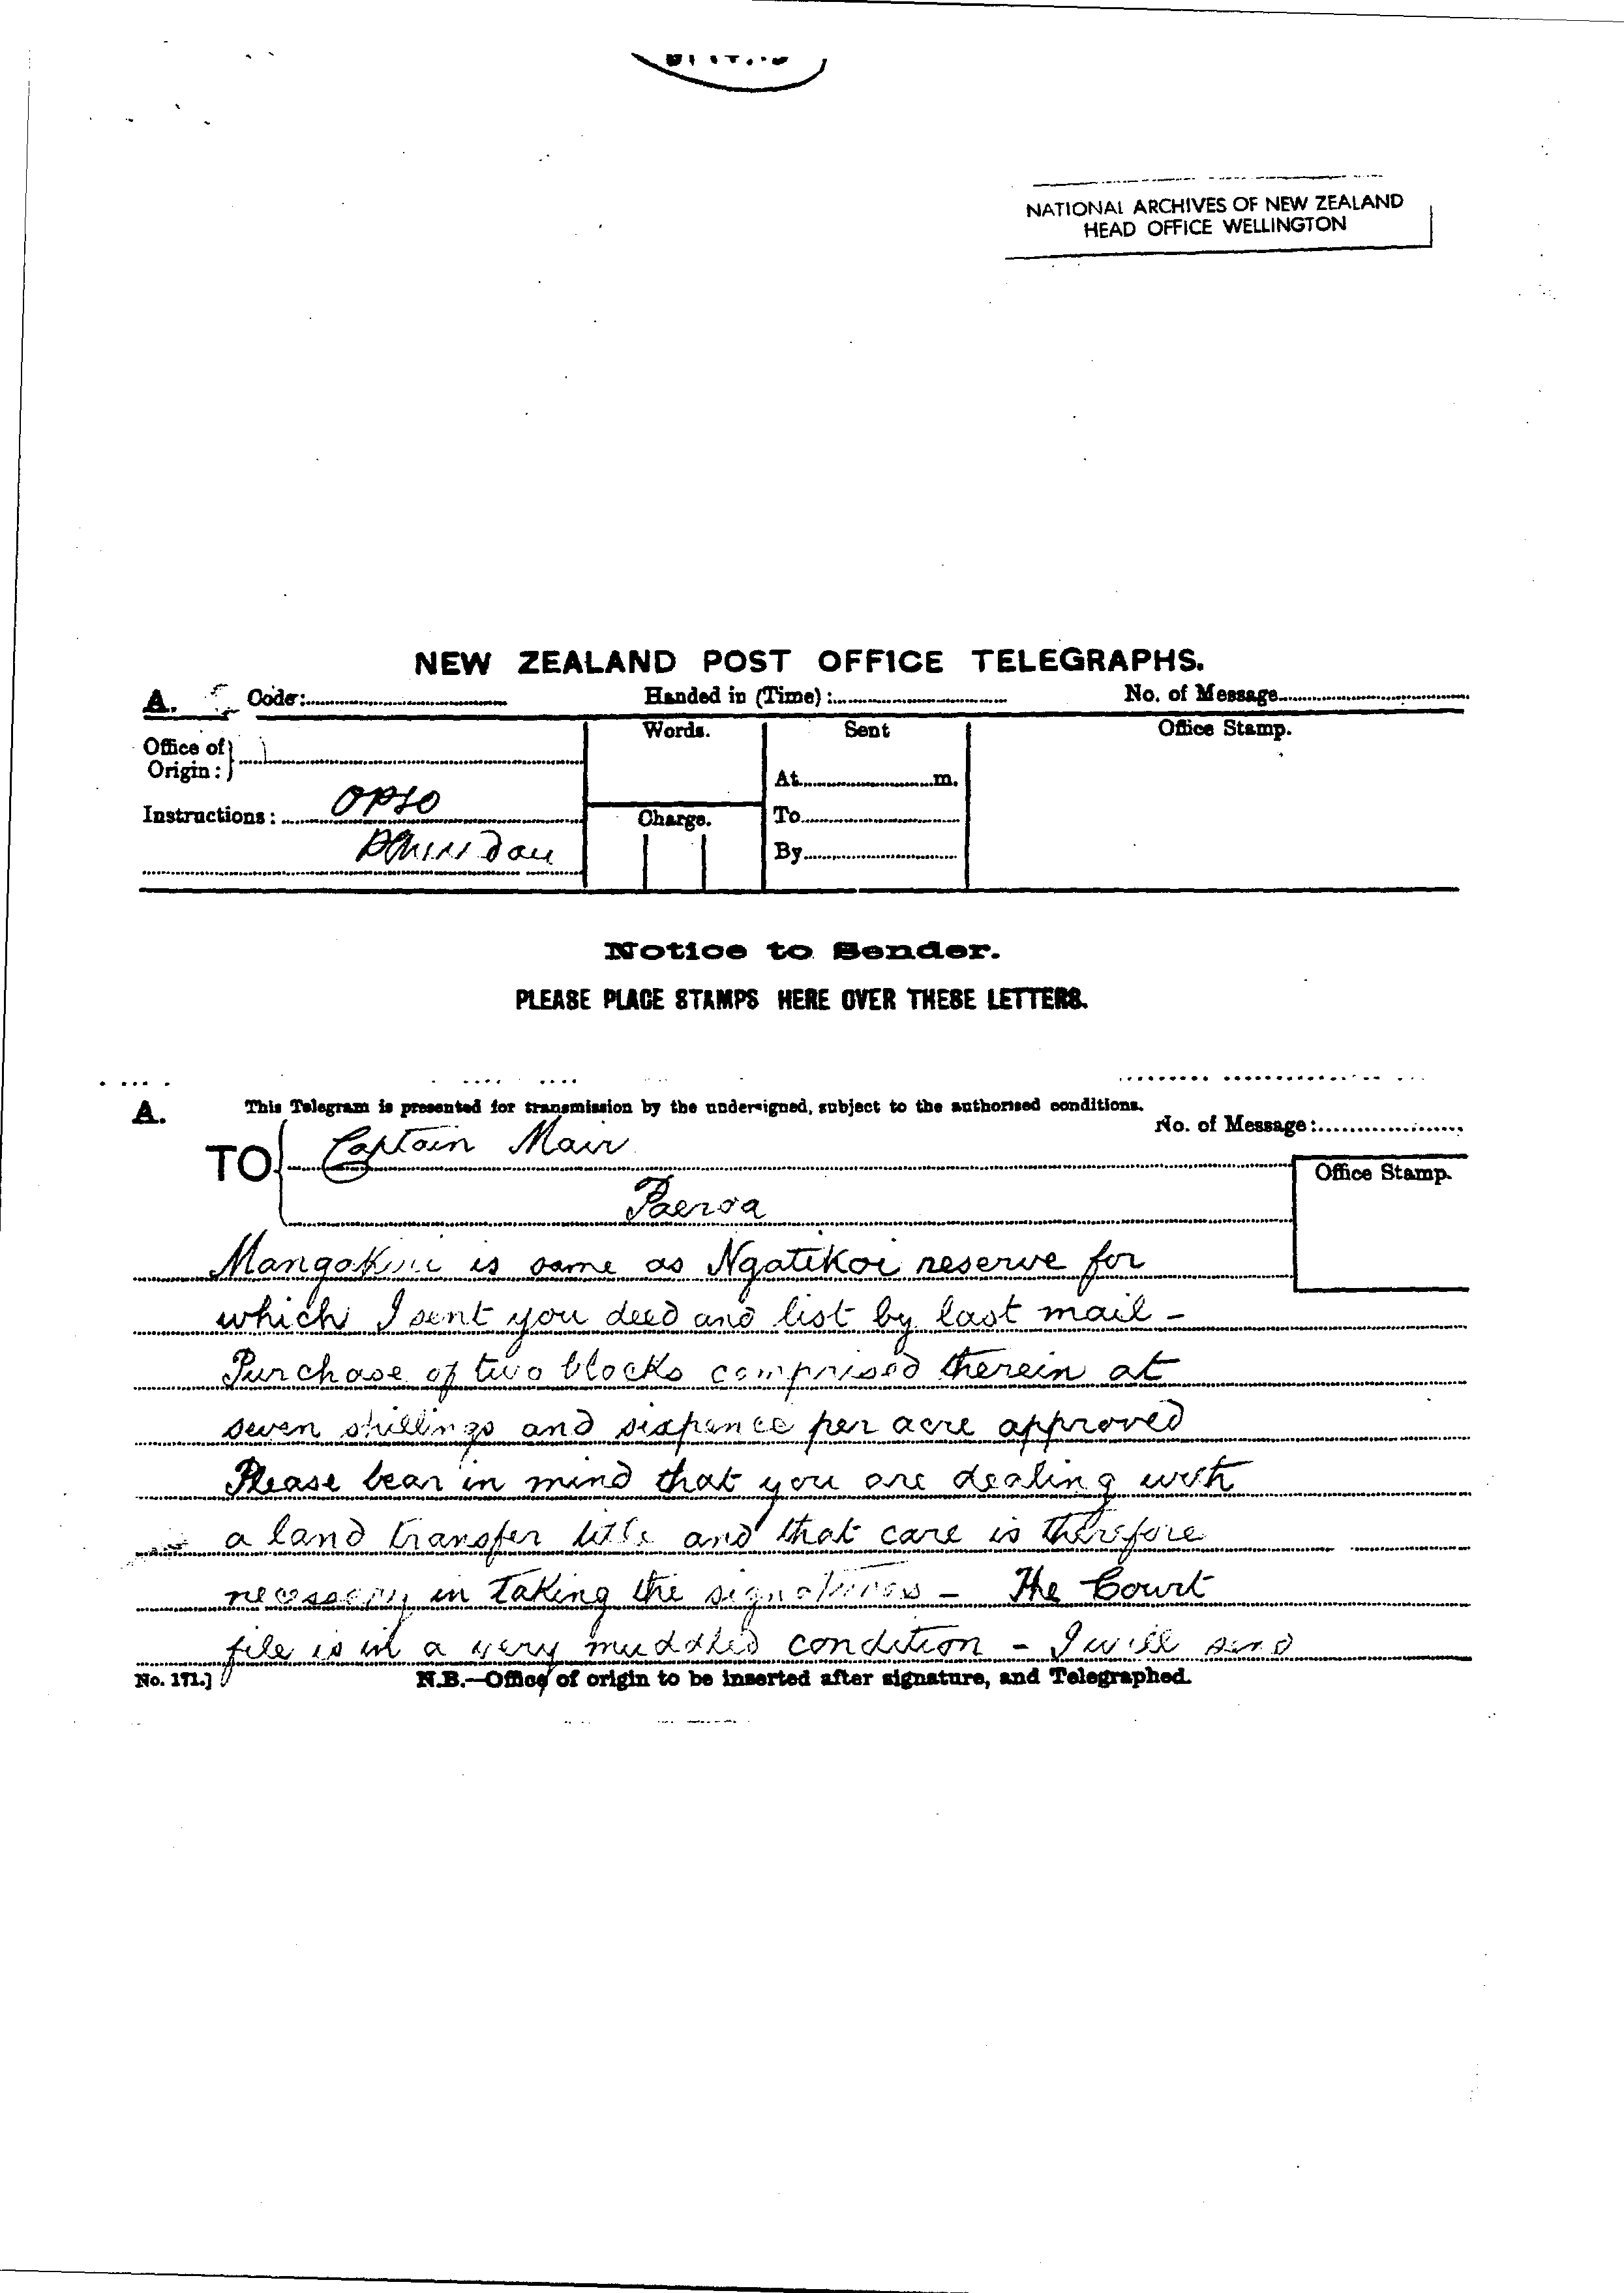 NATIONAL ARCHIVES OF NEW ZEALAND
HEAD OFFICE WELLINGTON
NEW ZEALAND POST OFFICE TELEGRAPHS.
A. Code: Handed in (Time): No. of Message
Office of Origin:
Words.
Sent
Office Stamp.
At m.
Instructions: OPSO
Charge.
To
By
Notice to Sender.
PLEASE PLACE STAMPS HERE OVER THESE LETTERS.
A. This Telegram is presented for transmission by the undersigned, subject to the authorised conditions.
No. of Message:
TO Captain Mair
Office Stamp.
Paeroa
is same as Ngatikoi reserve for
which I sent you deed and list by last mail -
Purchase of two blocks comprised therein at
seven shillings and sixpence per acre approved
Please bear in mind that you are dealing with
a land transfer title and that care is therefore
necessary in taking the signatures - The Court
file is in a very muddled condition - I will send
No. 171.] N.B.—Office of origin to be inserted after signature, and Telegraphed.